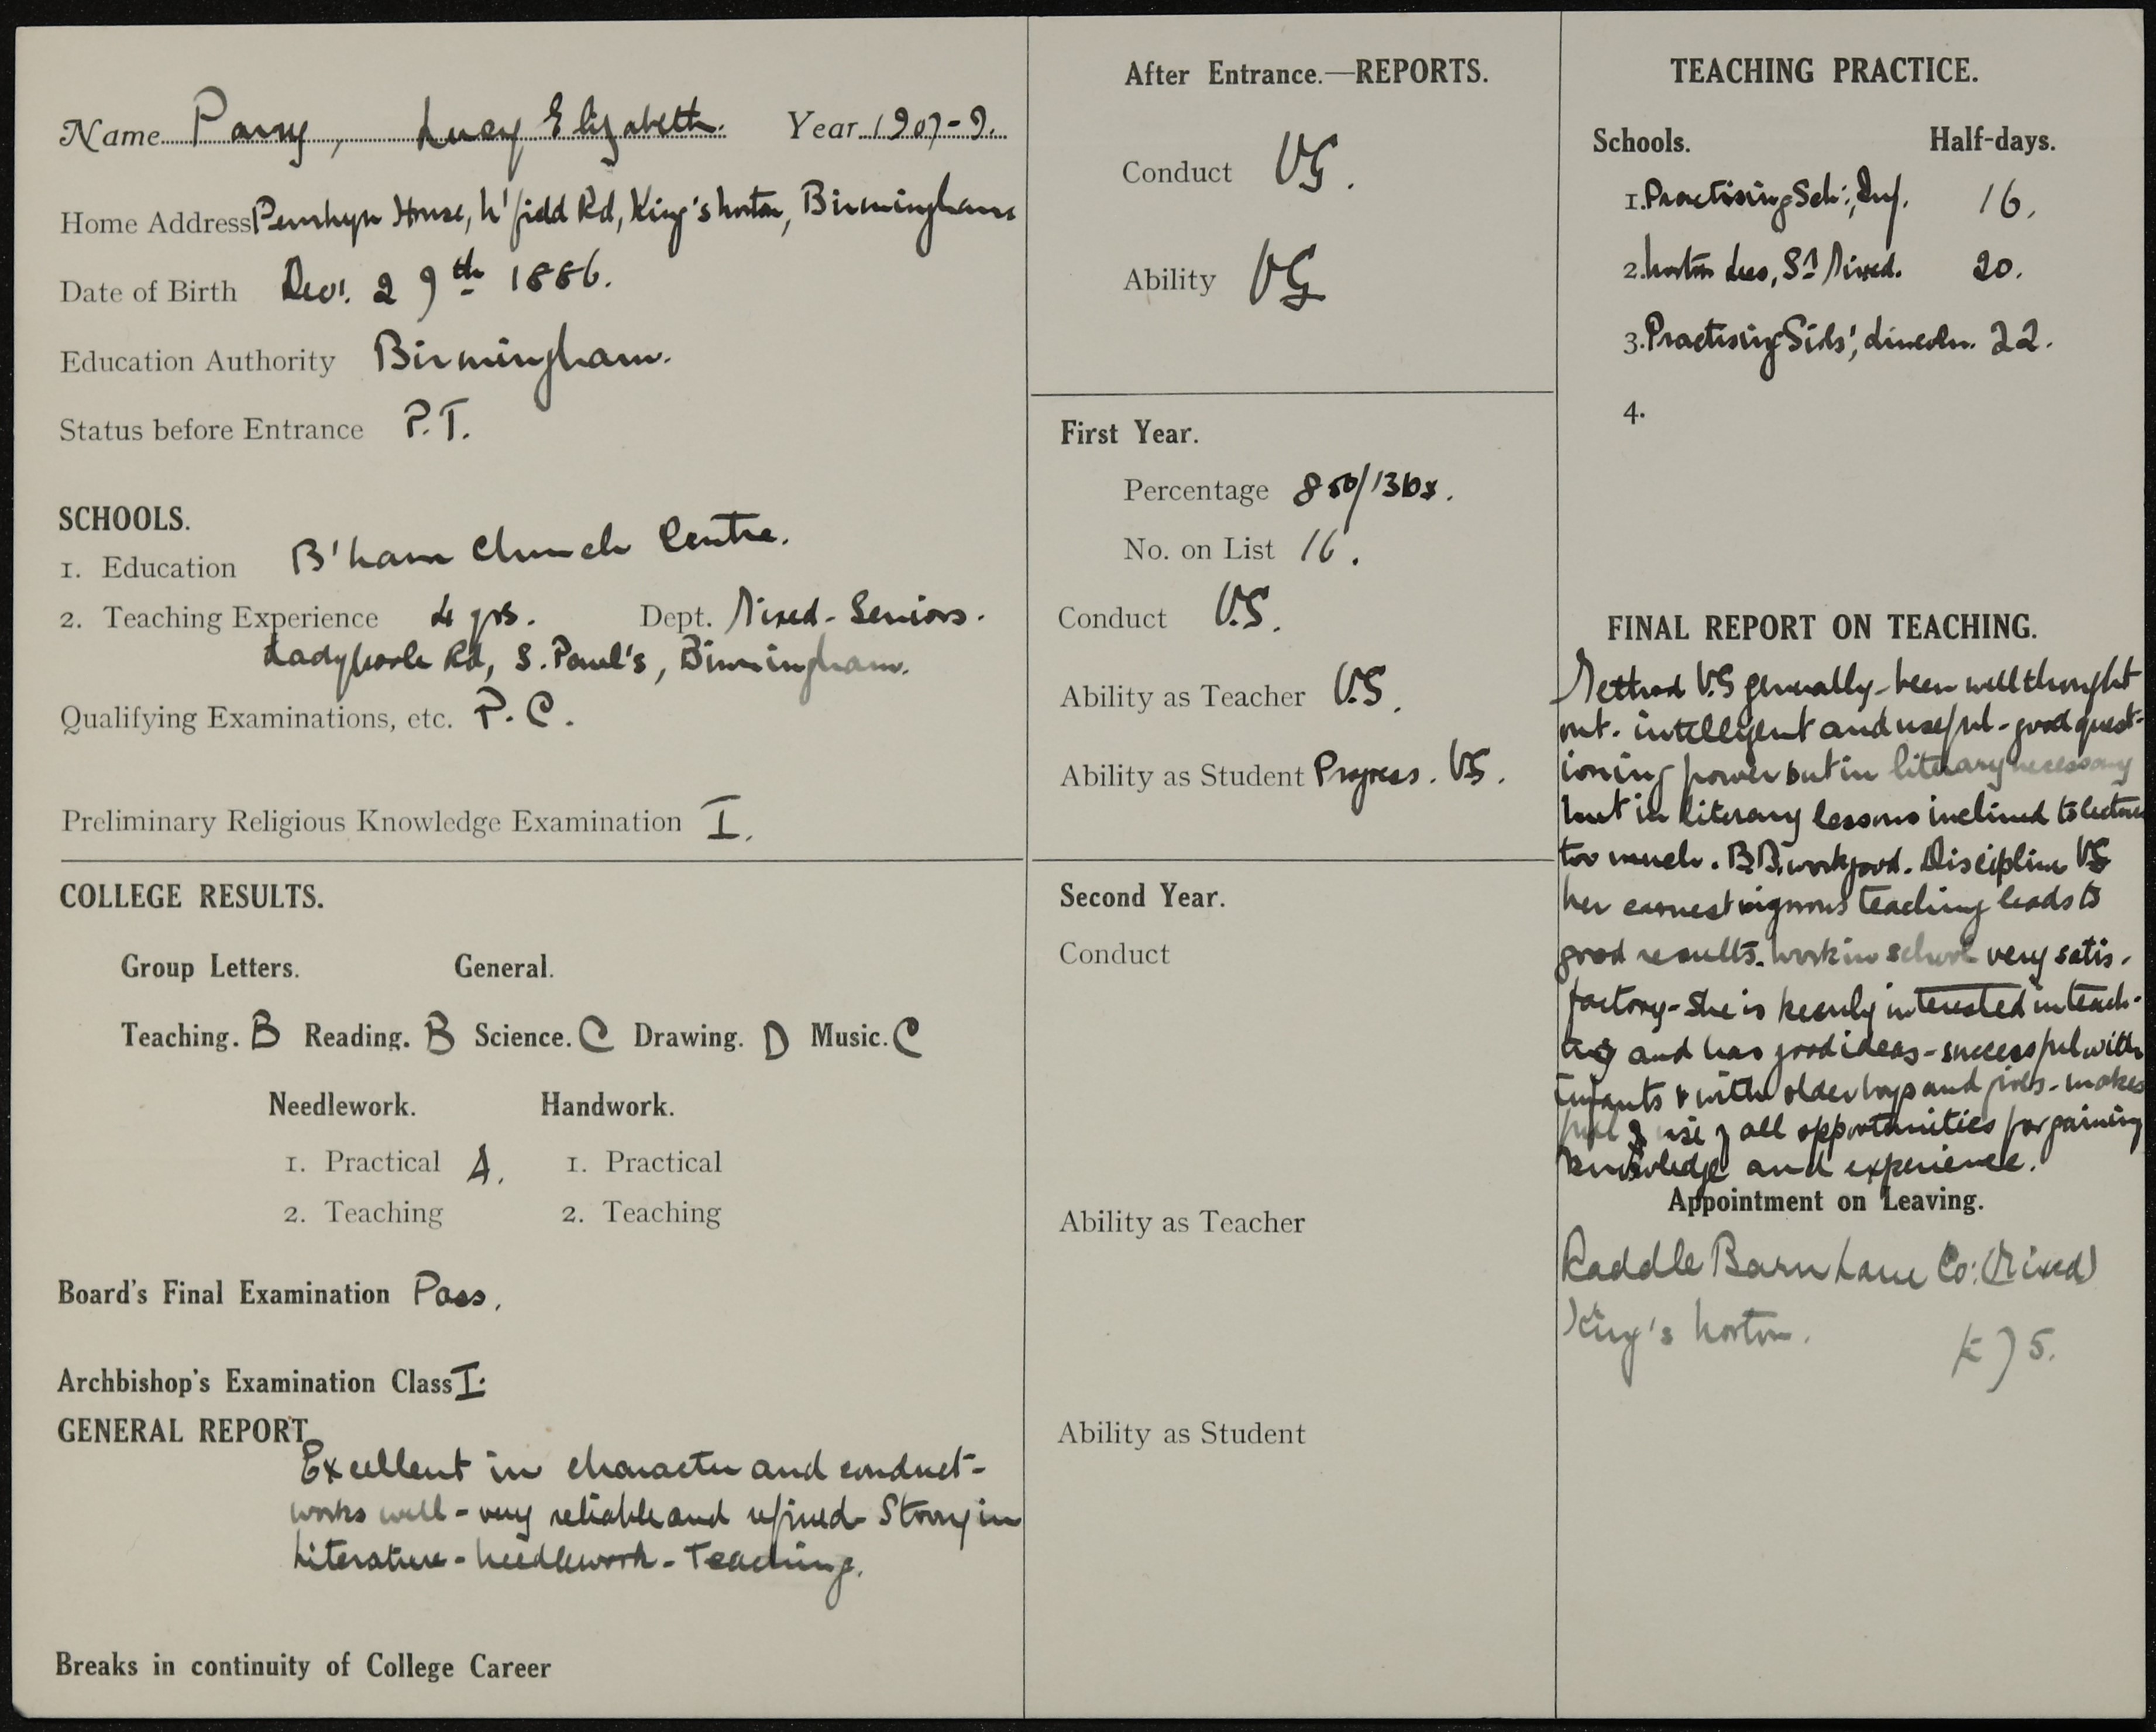 Name Parry, Lucy Elizabeth. Year 1907-9.
Home Address Penrhyn House, N'field Rd, King's Norton, Birmingham
Date of Birth 29th 1886.
Education Authority Birmingham.
Status before Entrance P.T.
SCHOOLS.
1. Education B'ham Church Centre.
2. Teaching Experience 4 yrs. Dept. Mixed - Seniors.
Ladypoole Rd, S. Paul's, Birmingham.
Qualifying Examinations, etc. P.C.
Preliminary Religious Knowledge Examination I.
COLLEGE RESULTS.
Group Letters. General.
Teaching. B Reading. B Science. C Drawing. D Music. C
Needlework. Handwork.
1. Practical A. 1. Practical
2. Teaching 2. Teaching
Board's Final Examination Pass.
Archbishop's Examination Class I.
GENERAL REPORT
Excellent in character and conduct -
works well - very reliable and refined - Strong in
Literature - Needlework - Teaching.
Breaks in continuity of College Career
After Entrance.—REPORTS.
Conduct VG.
Ability VG
First Year.
Percentage 850/
No. on List 16.
Conduct V.G.
Ability as Teacher V.G.
Ability as Student Progress. VG.
Second Year.
Conduct
Ability as Teacher
Ability as Student
TEACHING PRACTICE.
Schools. Half-days.
1. Practising Sch:, Inf. 16.
2. Mixed. 20.
3. Practising Girls', Lincoln. 22.
4.
FINAL REPORT ON TEACHING.
Method V.G generally - been well thought
out. intelligent and useful - good quest-
ioning power but in literary necessary
but in literary lessons inclined to lecture
too much. B.B. work good. Discipline VG
her earnest vigorous teaching leads to
good results. Work in school very satis-
factory - She is keenly interested in teach-
ing and has good ideas - successful with
infants & with older boys and girls - makes
full & use of all opportunities for gaining
knowledge and experience.
Appointment on Leaving.
Raddle Barn Lane Co: (Mixed)
King's Norton. £75.